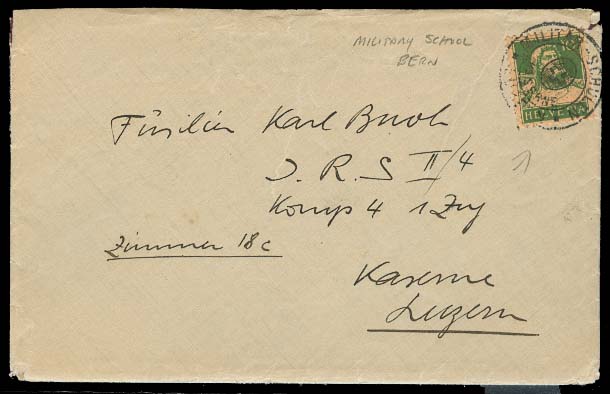 MILITARY SCHOOL
BERN
MILITÄR-SCHULEN
HELVETIA
Füsilier Karl Buob
J. R. S II/4
Komp 4 1 Zug
Zimmer 18c
Kaserne
Luzern